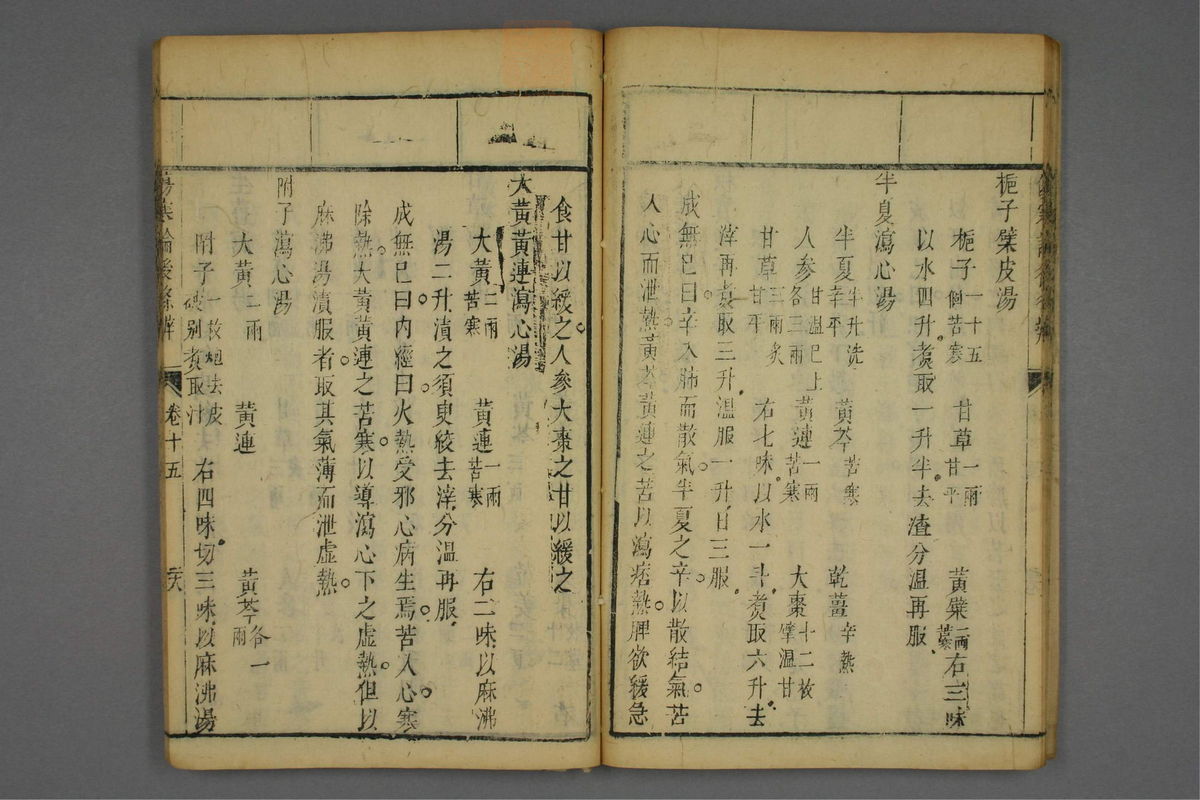 梔子蘗皮湯
梔子一十五個苦寒 甘草一兩甘平 黃蘗二兩苦寒 右三味
以水四升煑取一升半去渣分溫再服
半夏瀉心湯
半夏半升洗辛平 黃芩苦寒 乾薑辛熱
人參甘溫巳上各三兩 黃連一兩苦寒 大棗十二枚擘溫甘
甘草三兩炙甘平 右七味以水一斗煑取六升去
滓再煑取三升溫服一升日三服
成無巳曰辛入肺而散氣半夏之辛以散結氣苦
入心而泄熱黃芩黃連之苦以瀉痞熱脾欲緩急
食甘以緩之人參大棗之甘以緩之
大黃黃連瀉心湯
大黃二兩苦寒 黃連一兩苦寒 右二味以麻沸
湯二升漬之須臾絞去滓分溫再服
成無巳曰內經曰火熱受邪心病生焉苦入心寒
除熱大黃黃連之苦寒以導瀉心下之虛熱但以
麻沸湯漬服者取其氣薄而泄虛熱
附子瀉心湯
大黃二兩 黃連 黃芩各一兩
附子一枚炮去皮破別煑取汁 右四味切三味以麻沸湯
傷寒論後條辯 卷十五